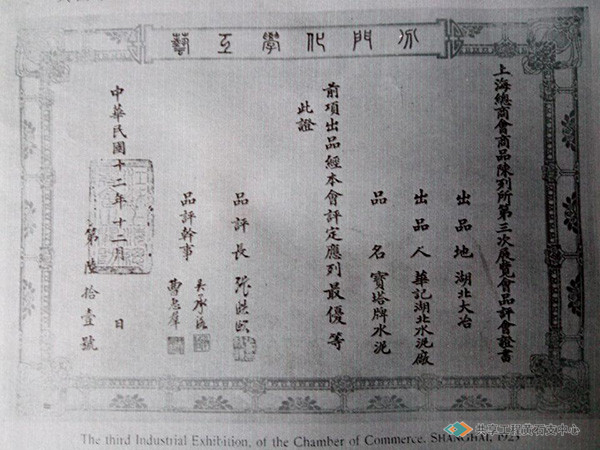 門化學工藝
上海總商會商品陳列所第三次展覽會品評會證書
出品地 湖北大冶
出品人 華記湖北水泥廠
品 名 寶塔牌水泥
前項出品經本會評定應列最優等
此證
品評長
品評幹事 吳承洛
曹惠羣
中華民國十二年十二月 日
第陸拾壹號
共享工程黄石支中心
The third Industrial Exhibition, of the Chamber of Commerce. SHANGHAI, 1923